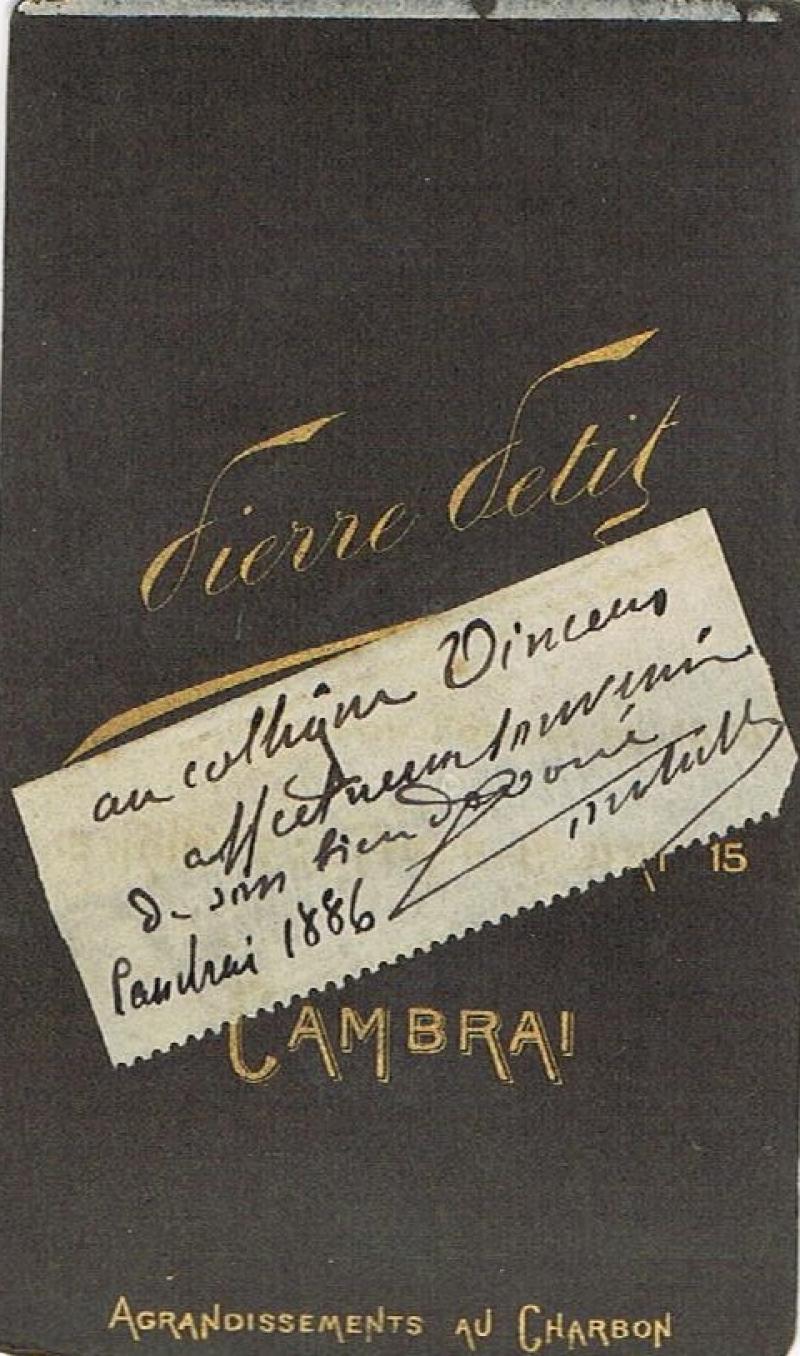 Pierre Petit
au Vincens
affectueux souvenir
de son bien dévoué
Cambrai 1886
15
CAMBRAI
AGRANDISSEMENTS AU CHARBON